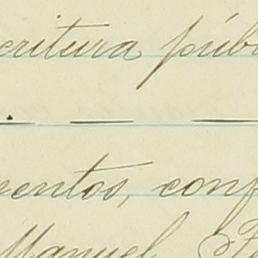 critura públ
. — — —
centos, conf
Manuel F